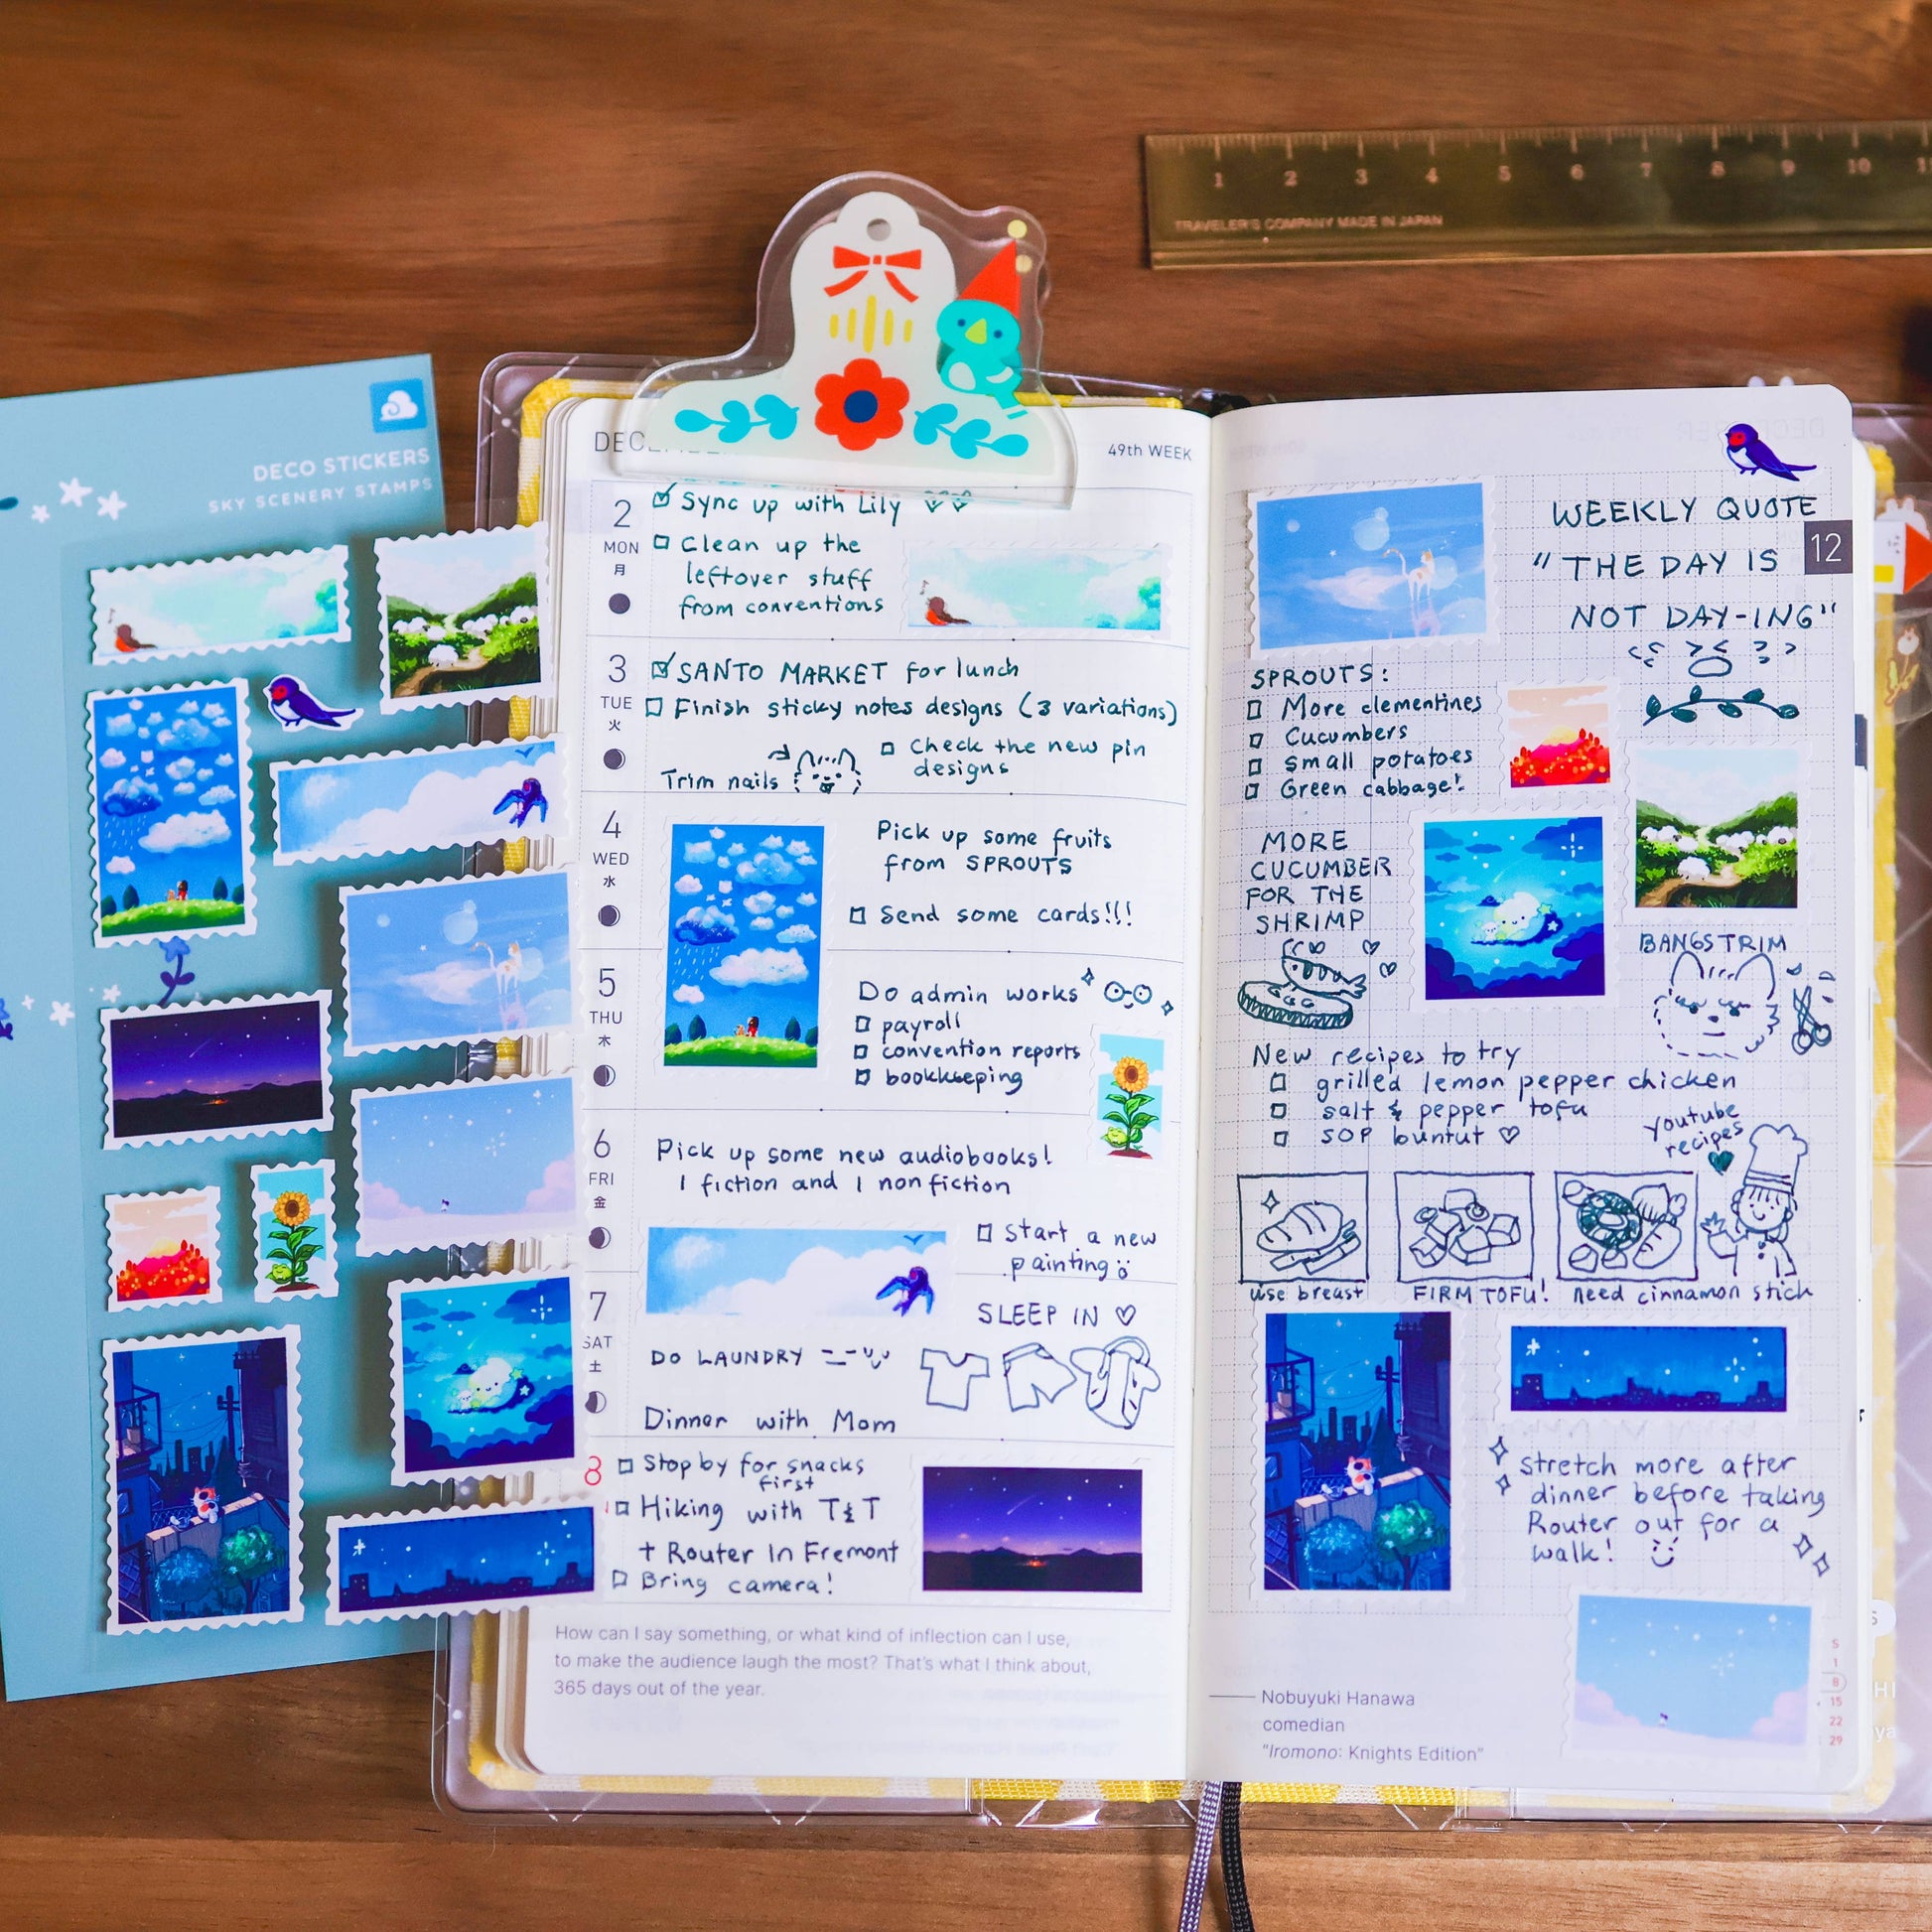 1 2 3 4 5 6 7 8 9 10
TRAVELER'S COMPANY MADE IN JAPAN
DECO STICKERS
SKY SCENERY STAMPS
49th WEEK
2
MON
月
Sync up with Lily
Clean up the
leftover stuff
from conventions
3
TUE
火
SANTO MARKET for lunch
Finish sticky notes designs (3 variations)
Trim nails
Check the new pin
designs
4
WED
水
Pick up some fruits
from SPROUTS
Send some cards!!!
5
THU
木
Do admin works
payroll
convention reports
bookkeeping
6
FRI
金
Pick up some new audiobooks!
1 fiction and 1 non fiction
Start a new
painting
7
SAT
土
SLEEP IN ♡
DO LAUNDRY
Dinner with Mom
8
Stop by for snacks
first
Hiking with T&T
+ Router in Fremont
Bring camera!
How can I say something, or what kind of inflection can I use,
to make the audience laugh the most? That's what I think about,
365 days out of the year.
WEEKLY QUOTE
"THE DAY IS
NOT DAY-ING"
12
SPROUTS:
More clementines
Cucumbers
Small potatoes
Green cabbage!
MORE
CUCUMBER
FOR THE
SHRIMP
BANGS TRIM
New recipes to try
grilled lemon pepper chicken
salt & pepper tofu
SOP buntut ♡
youtube
recipes
use breast
FIRM TOFU!
need cinnamon stick
stretch more after
dinner before taking
Router out for a
walk!
Nobuyuki Hanawa
comedian
"Iromono: Knights Edition"
S
1
8
15
22
29